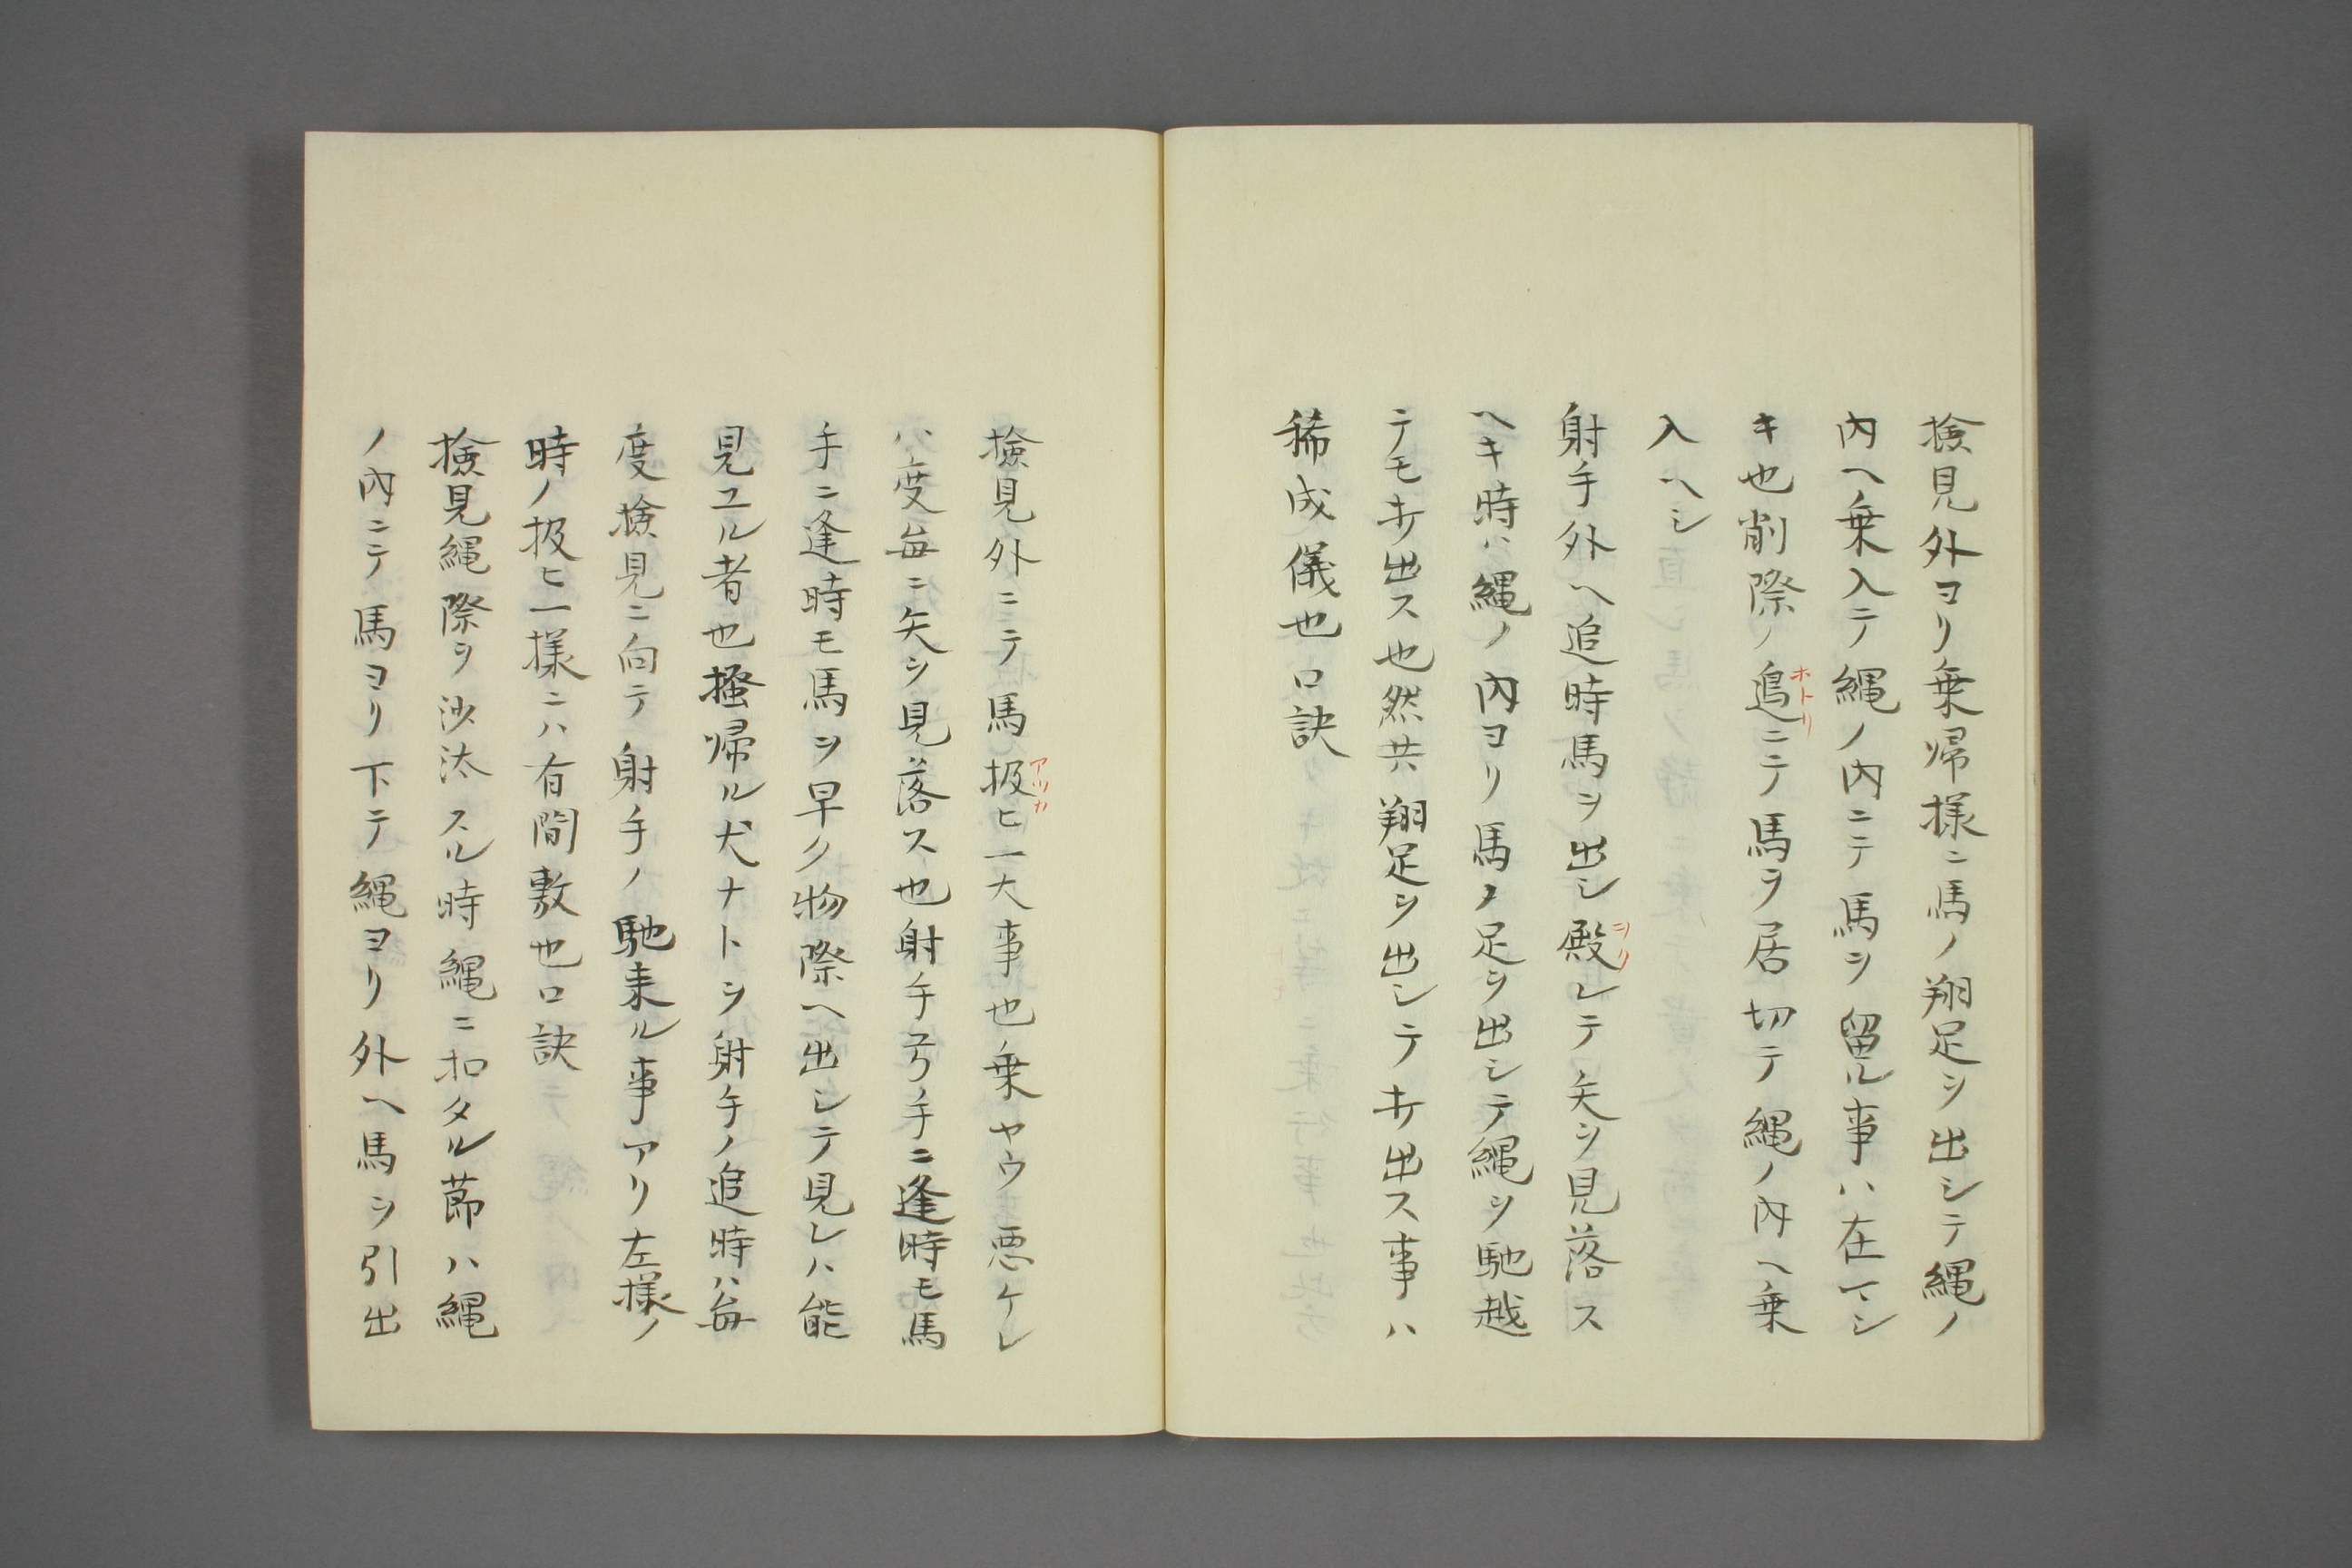 検見外ヨリ乗帰様ニ馬ノ翔足ヲ出シテ縄ノ
内ヘ乗入テ縄ノ内ニテ馬ヲ留ル事ハ在マシ
キ也削際ノ ホトリ ニテ馬ヲ居切テ縄ノ内ヘ乗
入ヘシ
射手外ヘ追時馬ヲ出シ殿シリレテ矢ヲ見落ス
ヘキ時ハ縄ノ内ヨリ馬ノ足ヲ出シテ縄ヲ馳越
テモ打出ス也然共翔足ヲ出シテ打出ス事ハ
稀成儀也口訣
検見外ニテ馬扱アツカヒ一大事也乗ヤウ悪ケレ
ハ度毎ニ矢ヲ見落ス也射手弓手ニ逢時モ馬
手ニ逢時モ馬ヲ早ク物際ヘ出シテ見レハ能
見ユル者也掻帰ル犬ナトヲ射手ノ追時ハ毎
度検見ニ向テ射手ノ馳来ル事アリ左様ノ
時ノ扱ヒ一様ニハ有間敷也口訣
検見縄際ヲ沙汰スル時縄ニ扣タル節ハ縄
ノ内ニテ馬ヨリ下テ縄ヨリ外ヘ馬ヲ引出